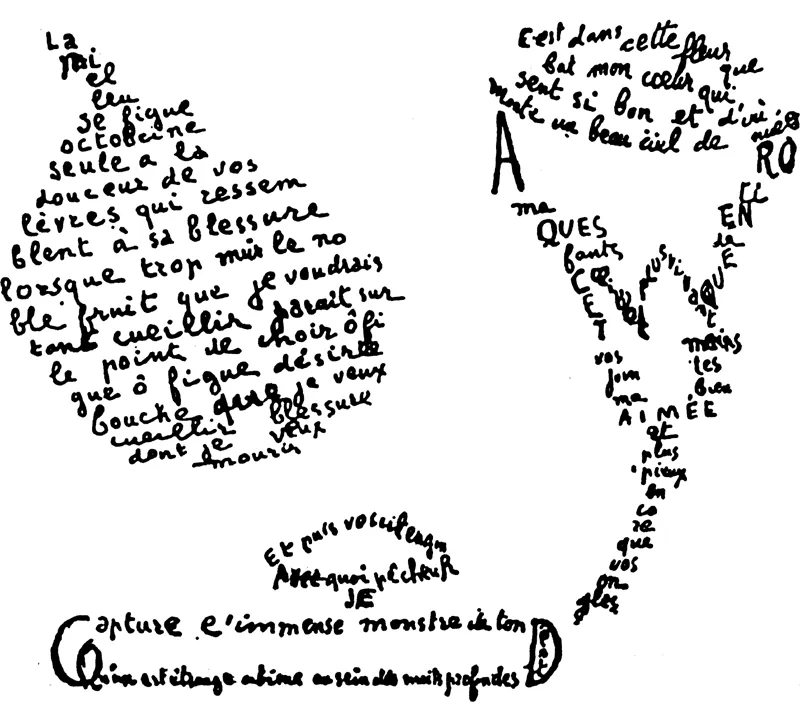 La
mi
el
leu
se figue
octobrine
seule a la
douceur de vos
lèvres qui ressem
blent à sa blessure
lorsque trop mûr le no
ble fruit que je voudrais
tant cueillir paraît sur
le point de choir ô fi
gue ô figue désirée
bouche que je veux
cueillir blessure
dont je veux
mourir
Et puis voici l'engin
Avec quoi pêcheur
JE
Capture l'immense monstre de ton
Qu'un art étrange abîme au sein des nuits profondes
E est dans cette fleur que
bat mon cœur qui
sent si bon et d'où
monte un beau ciel de
A RO
ma
QUES
EN
fants
la
CET
œillet plus vivant
QUE
vos
join
ma
moins
les
bien
AIMÉE
et
plus
pieux
en
co
re
que
vos
on
gles